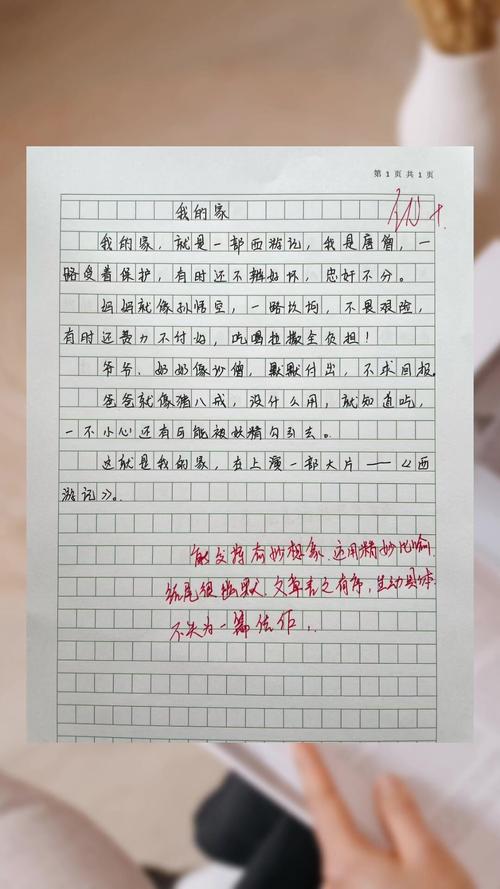 第 1 页 共 1 页
我的家
我的家，就是一部西游记，我是唐僧，一
路受着保护，有时还不辩好坏，忠奸不分。
妈妈就像孙悟空，一路坎坷，不畏艰险，
有时还费力不讨好，吃喝拉撒全负担！
爷爷、奶奶像沙僧，默默付出，不求回报。
爸爸就像猪八戒，没什么用，就知道吃，
一不小心还有可能被妖精勾引去。
这就是我的家，在上演一部大片——《西
游记》。
奇妙想象，运用精妙比喻
结尾很幽默，文章言之有序，生动具体
不失为一篇佳作。